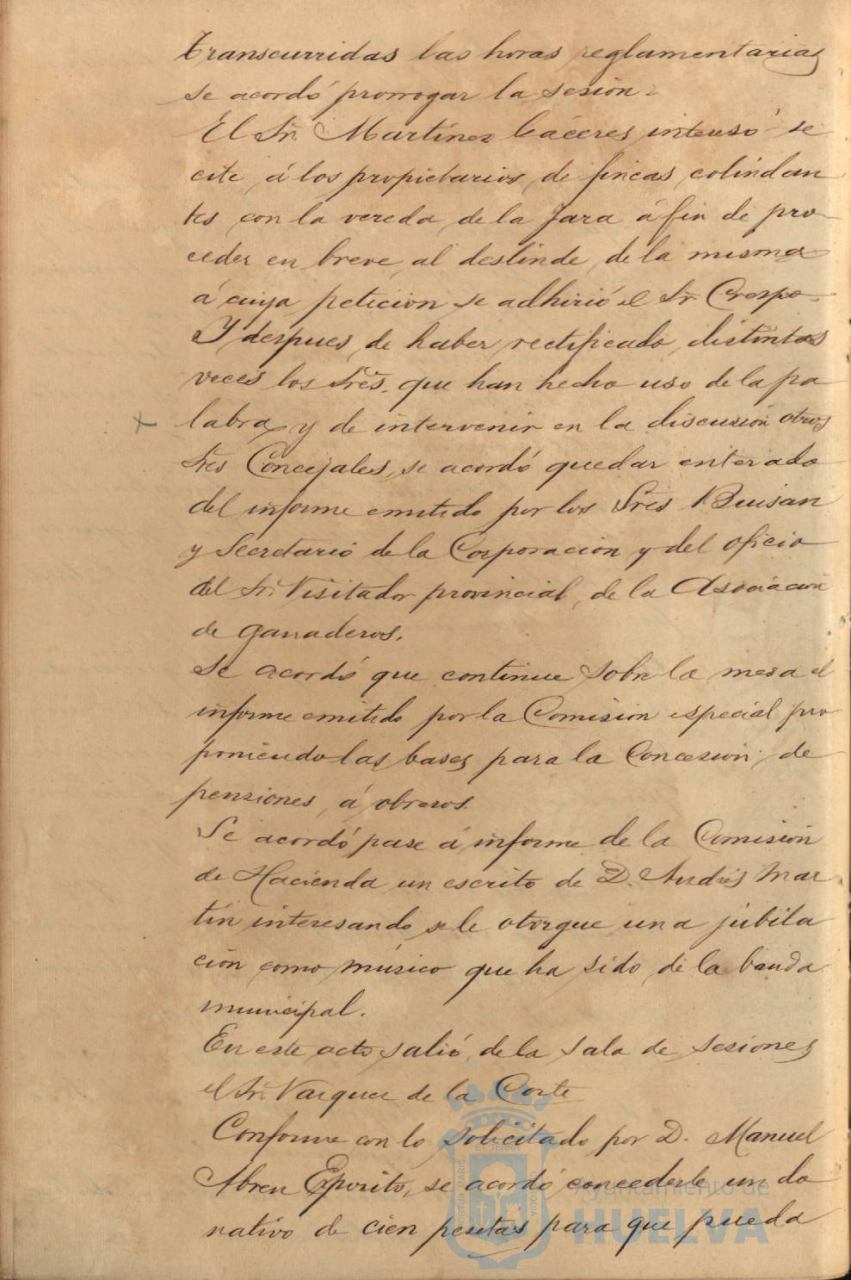 Transcurridas las horas reglamentarias
se acordó prorrogar la sesion.
El Sr. Martinez Caceres, interesó se
cite á los propietarios, de fincas, colindan
tes con la vereda, de la Jara á fin de pro-
ceder en breve, al deslinde, de la misma
á cuya peticion se adhirió el Sr. Crespo.
Y despues, de haber rectificado, distintas
veces los Sres. que han hecho uso de la pa
labra, y de intervenir en la discusión otros
Sres Concejales, se acordó quedar enterado
del informe emitido por los Sres Buisan
y Secretario de la Corporación y del oficio
del Sr. Visitador provincial, de la Asociacion
de ganaderos.
Se acordó que continue sobre la mesa el
informe emitido por la Comision especial pro
poniendo las bases para la Concesión de
pensiones, á obreros.
Se acordó pase á informe de la Comisión
de Hacienda un escrito de D. Andrés Mar
tín interesando se le otorgue una jubila
ción como músico que ha sido, de la banda
municipal.
En este acto salió, de la sala de sesiones
el Sr. Vazquez de la Corte
Conforme con lo solicitado por D. Manuel
Abreu Esposito, se acordó concederle un do
nativo de cien pesetas para que pueda
Ayuntamiento de
HUELVA